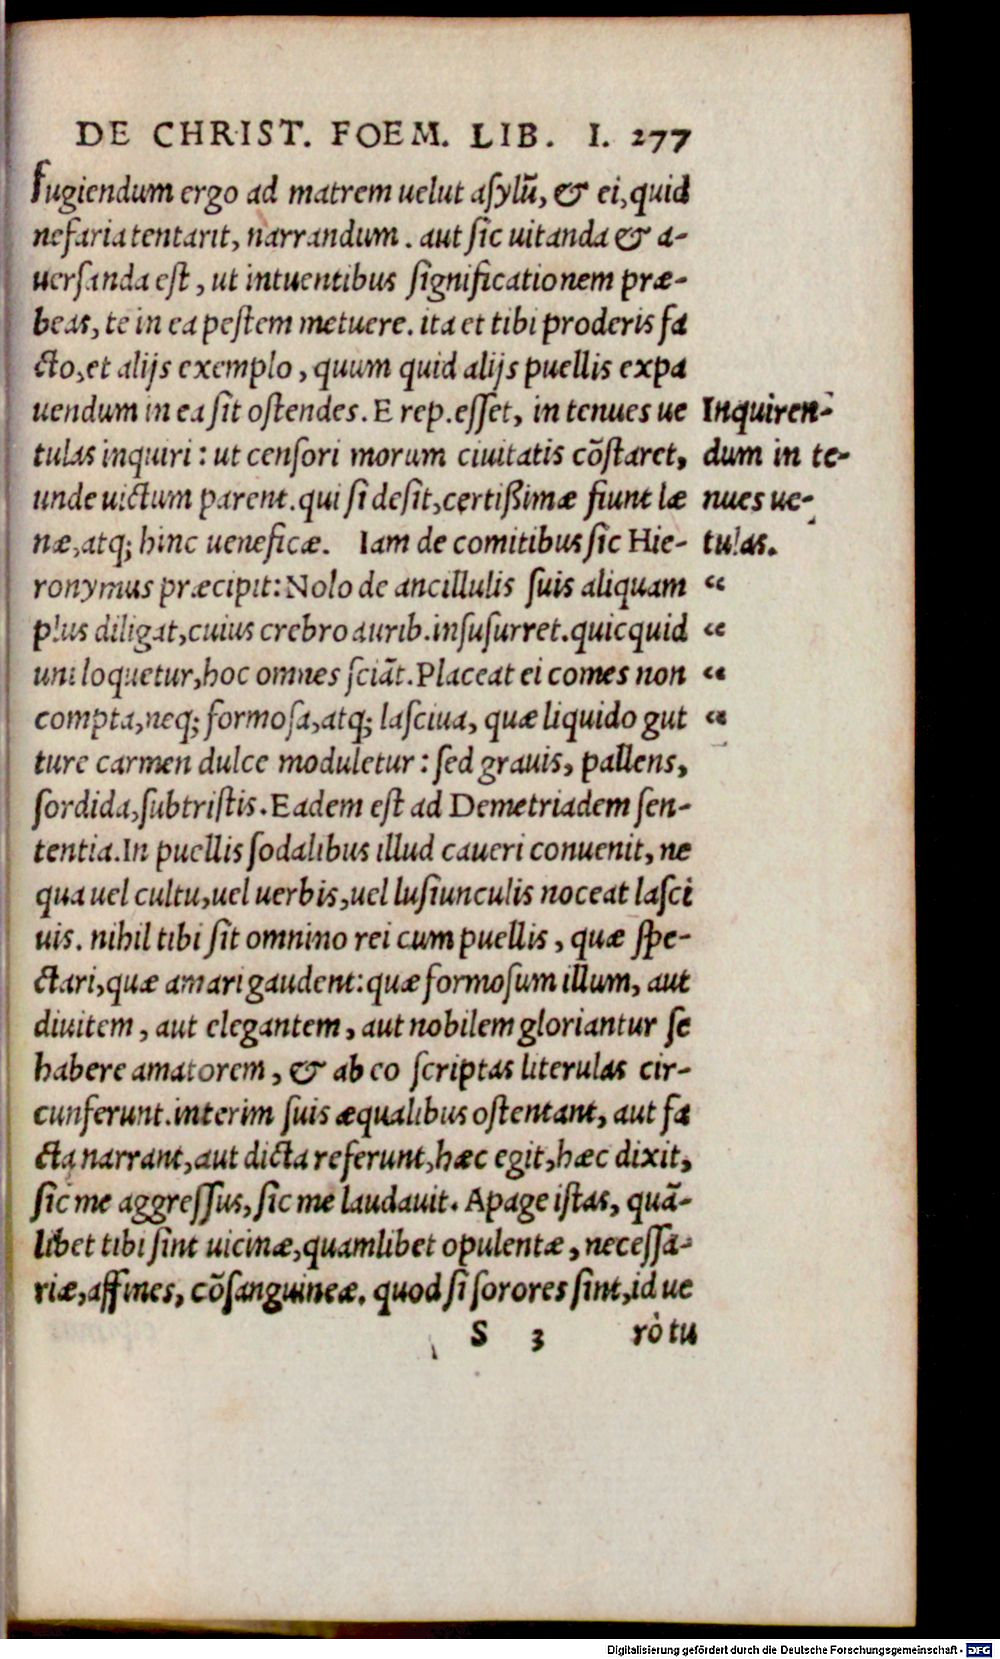 DE CHRIST. FOEM. LIB. I. 277
Fugiendum ergo ad matrem uelut asylũ, & ei, quid
nefaria tentarit, narrandum. aut sic uitanda & a-
uersanda est, ut intuentibus significationem præ-
beas, te in ea pestem metuere. ita et tibi proderis fa
cto, et alijs exemplo, quum quid alijs puellis expa
uendum in ea sit ostendes. E rep. esset, in tenues ue
tulas inquiri: ut censori morum ciuitatis cõstaret,
unde uictum parent. qui si desit, certißimæ fiunt læ
næ, atq; hinc ueneficæ. Iam de comitibus sic Hie-
ronymus præcipit: Nolo de ancillulis suis aliquam
plus diligat, cuius crebro aurib. insusurret. quicquid
uni loquetur, hoc omnes sciãt. Placeat ei comes non
compta, neq; formosa, atq; lasciua, quæ liquido gut
ture carmen dulce moduletur: sed grauis, pallens,
sordida, subtristis. Eadem est ad Demetriadem sen-
tentia. In puellis sodalibus illud caueri conuenit, ne
qua uel cultu, uel uerbis, uel lusiunculis noceat lasci
uis. nihil tibi sit omnino rei cum puellis, quæ spe-
ctari, quæ amari gaudent: quæ formosum illum, aut
diuitem, aut elegantem, aut nobilem gloriantur se
habere amatorem, & ab eo scriptas literulas cir-
cunferunt. interim suis æqualibus ostentant, aut fa
cta narrant, aut dicta referunt, hæc egit, hæc dixit,
sic me aggressus, sic me laudauit. Apage istas, quã-
libet tibi sint uicinæ, quamlibet opulentæ, necessa-
riæ, affines, cõsanguineæ. quod si sorores sint, id ue
S 3 rò tu
Inquiren-
dum in te-
nues ue-
tulas.
“
“
“
“
Digitalisierung gefördert durch die Deutsche Forschungsgemeinschaft - DFG